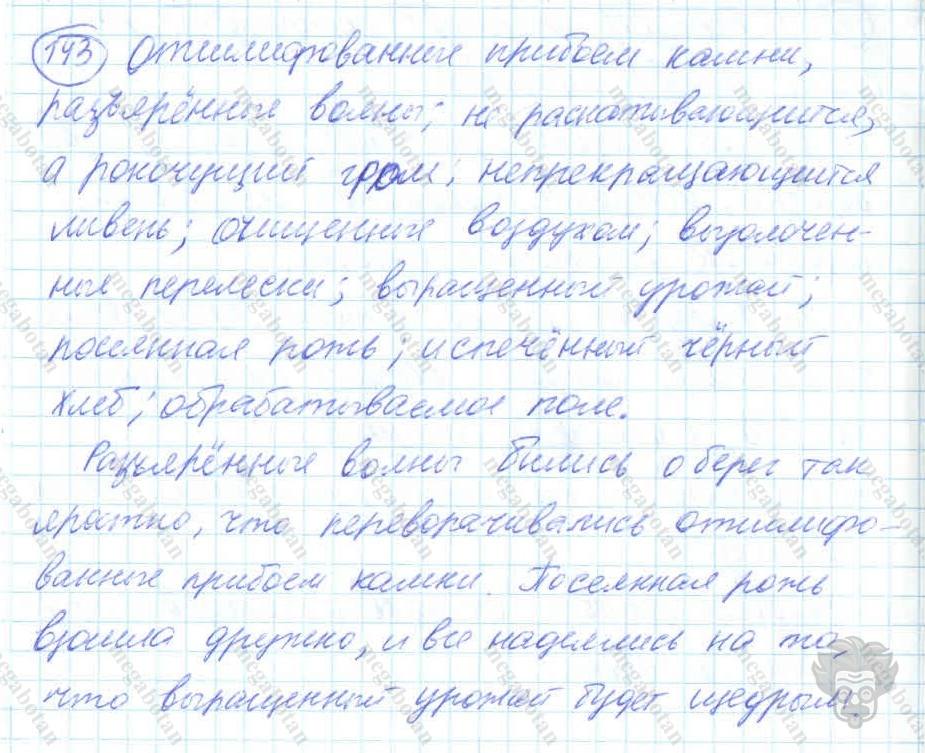 143 Отшлифованные прибоем камни,
разъярённые волны; не раскатывающийся,
а рокочущий гром; непрекращающийся
ливень; очищенные воздухом; вызолочен-
ные перелески; выращенный урожай;
посеянная рожь; испечённый чёрный
хлеб; обрабатываемое поле.
Разъярённые волны бились о берег так
яростно, что переворачивались отшлифо-
ванные прибоем камни. Посеянная рожь
взошла дружно, и все надеялись на то,
что выращенный урожай будет щедрым.
megabotan